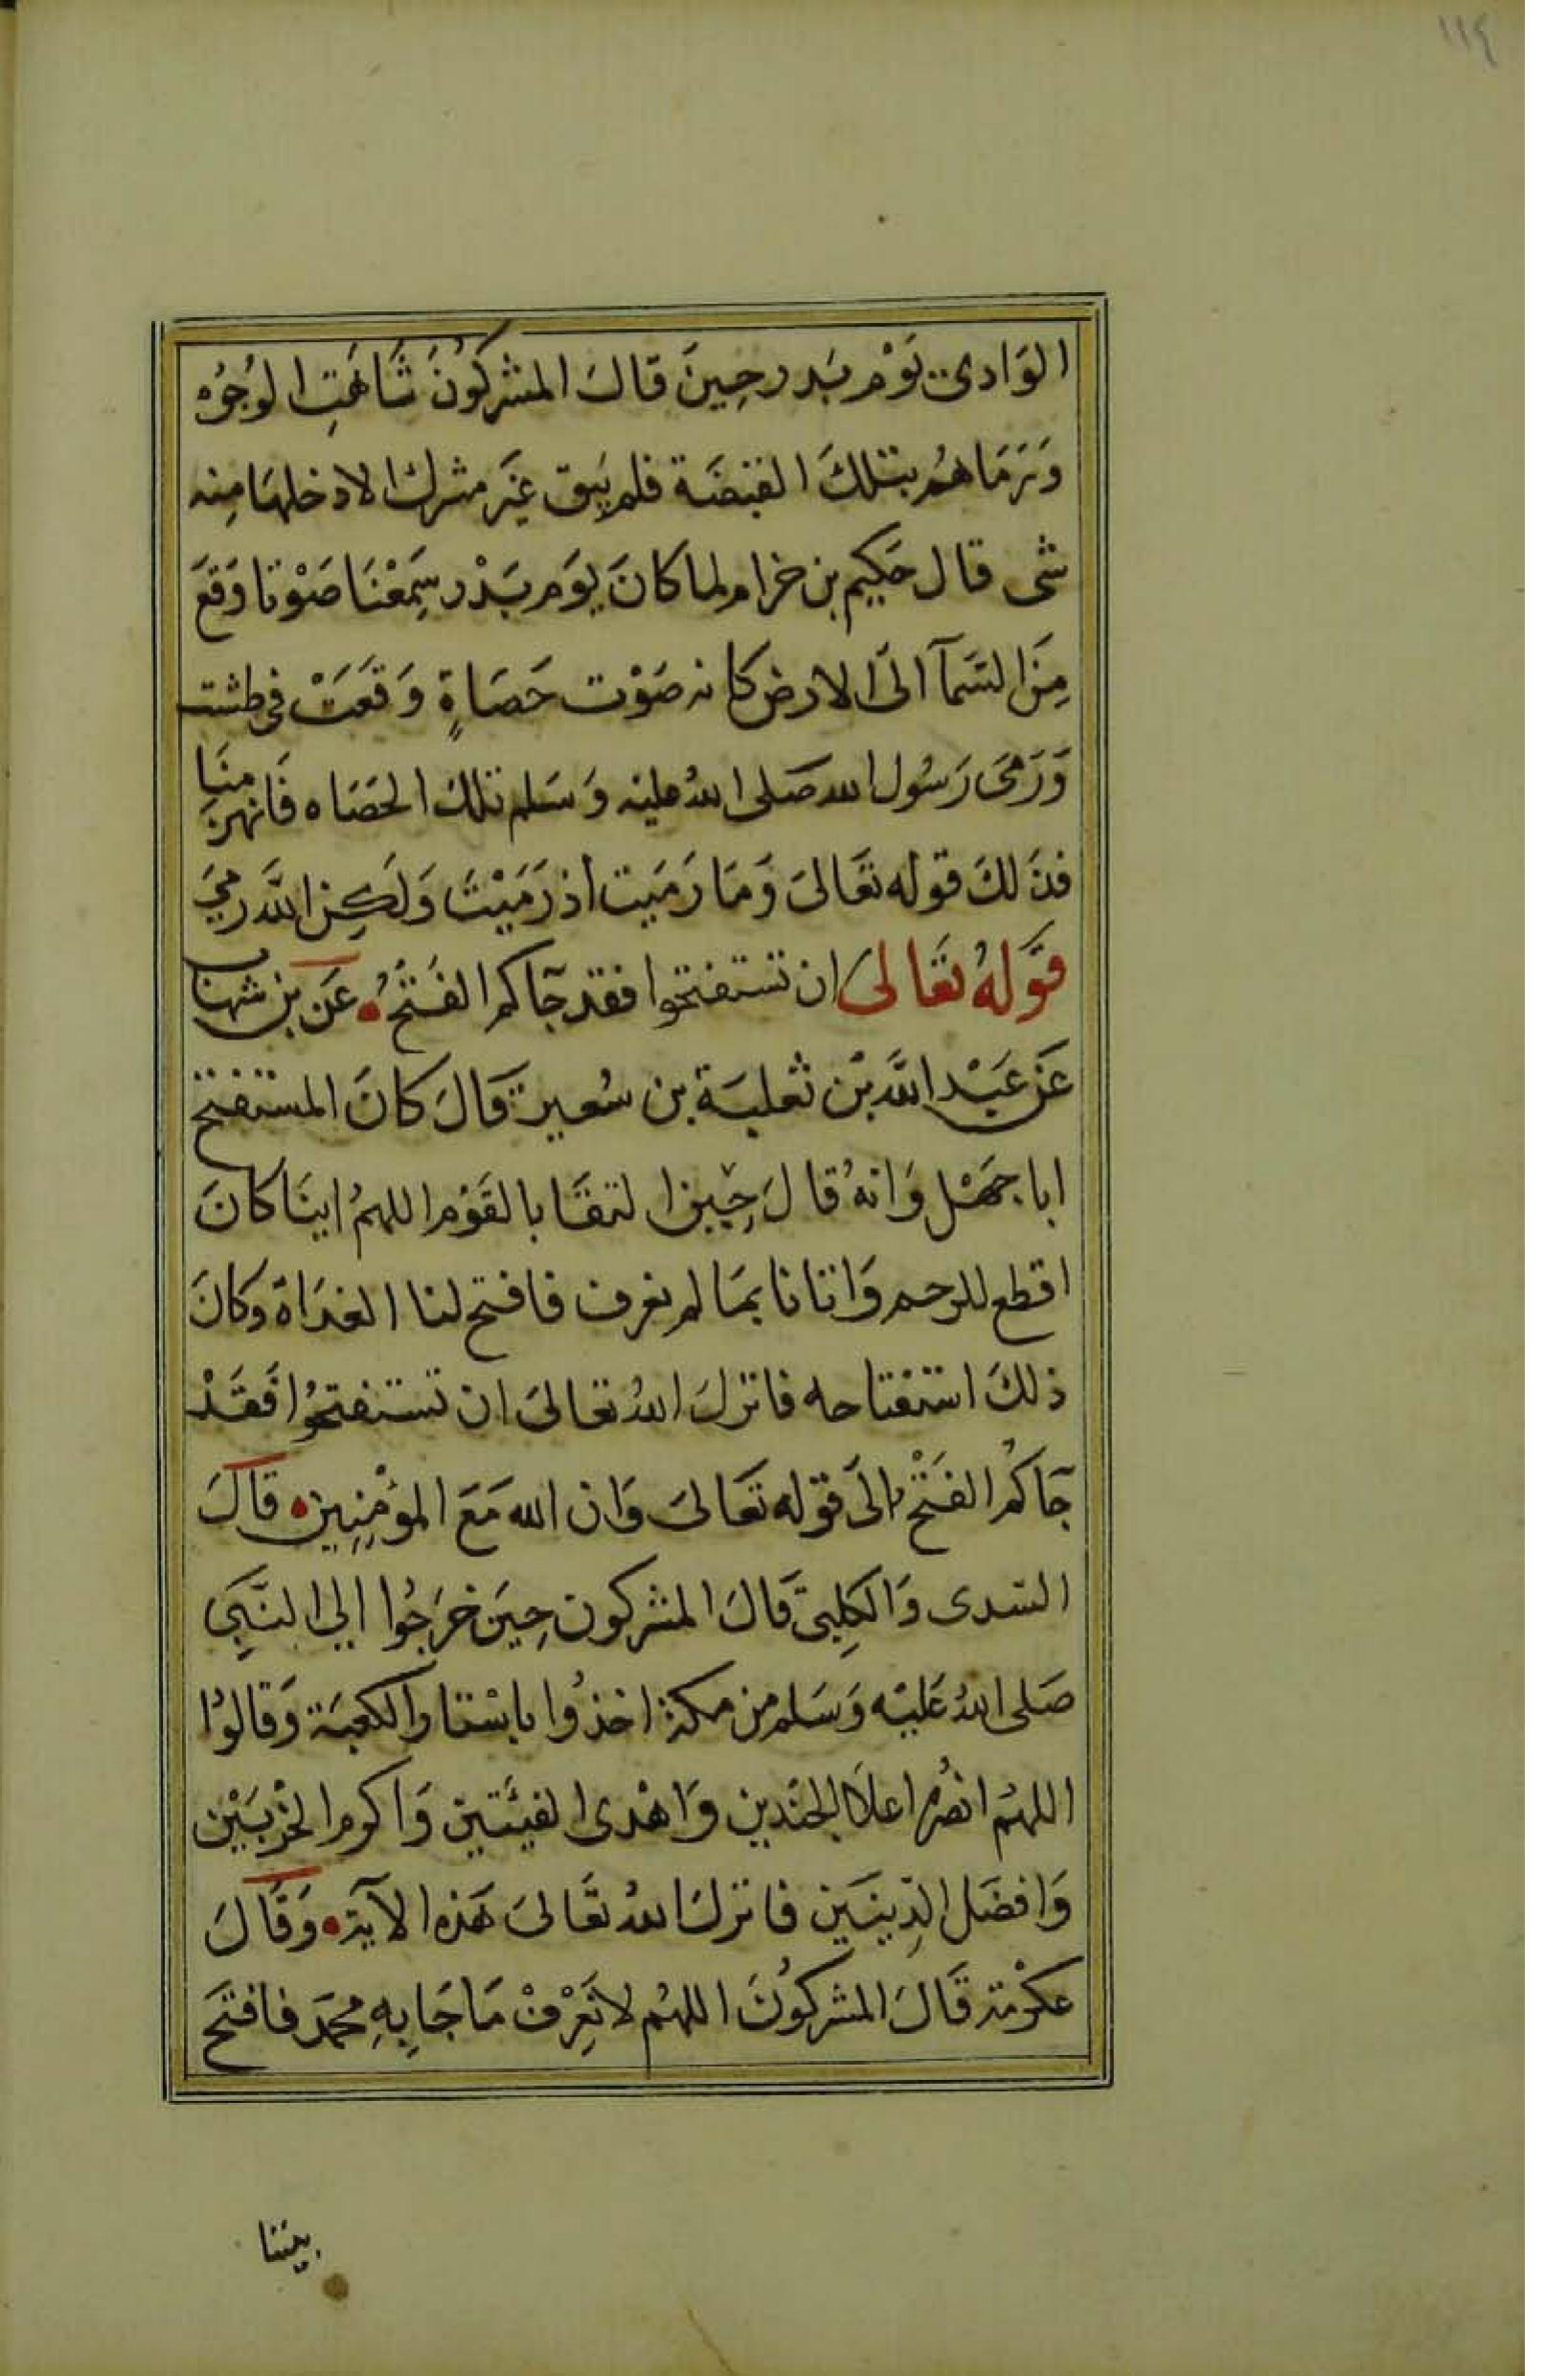 ١١٤
الوَادى يَوْم بَدر حِينَ قالَ المشركُونَ شَاهَتِ الوُجُوُه
وَرَمَاهُم بتلكَ القبضَة فلم يَبق عَين مشرك الا دخلهَا مِنه
شى قال حَكيم بن خزام لما كانَ يوَم بَدْر سَمِعْنَا صَوْتا وَقعَ
مِنَ السَّمآ الىَ الارض كانه صَوْت حَصَاةٍ وَقعَتْ فى طشت
وَرَمىَ رَسُول الله صَلى اللهُ عليه وَسَلم تلكَ الحصَاه فَانهزمنَا
فذَلكَ قوله تعَالىَ وَمَا رَميت اذ رَمَيْتَ وَلَكِن اللَّهَ رَمىَ
قوَلهُ تعَالىَ ان تستفتحوا فقد جآكم الفَتْحُ عَن بن شهاب
عَن عَبْد اللَّه بْن ثعلبَة بن سُعير قَالَ كانَ المستفتح
ابا جَهْل وَانهُ قالَ حِين التقَا بالقَوْم اللهمُ اينَا كانَ
اقطع للرحم وَاتانا بمَا لم نعرف فافتح لنا الغدَاة وكانَ
ذلكَ استفتاحه فانزلَ اللهُ تعالىَ ان تستفتحُوا فَقَدْ
جآكمُ الفَتْحُ الىَ قوله تعَالىَ وَان الله مَعَ المؤْمِنِين قالَ
السّدى وَالكلِبىّ قَالَ المشركون حِينَ خرَجُوا الي النّبِىَ
صَلى اللهُ عَليْه وَسَلم من مكة اخذوُا باسْتار الكعبَة وَقالوُا
اللهمُ انصُر اعلاَ الجندَين وَاهْدى الفيئَتين وَاكرم الحزْبَيْن
وَافضَل الدِّينَين فانزلَ اللهُ تعَالىَ هَذه الآية وَقَالَ
عكرْمة قَالَ المشركوُنَ اللهمُ لا نَعِرْفْ مَا جَا بِهِ محمَد فافتحَ
بيننا